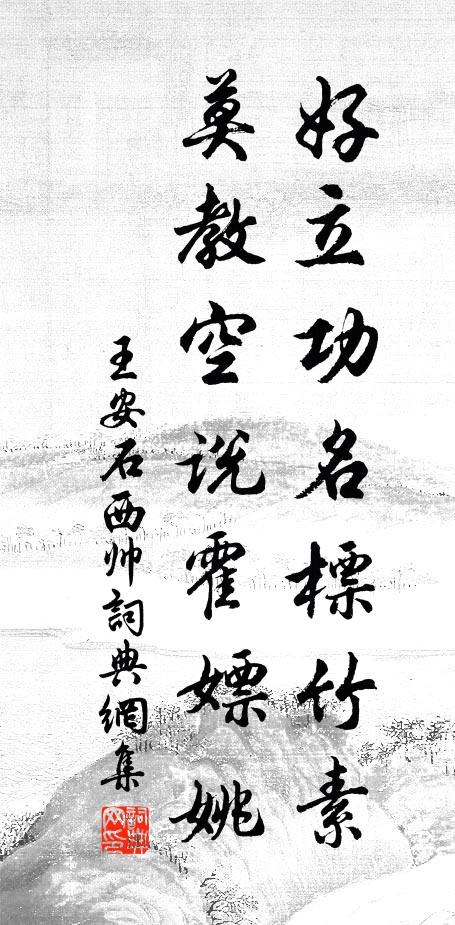 好立功名標竹素
莫教空説霍嫖姚
王安石西帅詞典網集